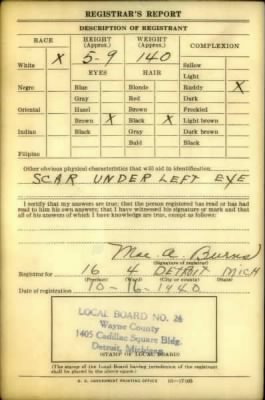 REGISTRAR'S REPORT
DESCRIPTION OF REGISTRANT
RACE HEIGHT (Approx.) WEIGHT (Approx.) COMPLEXION
White X 5-9 140 Sallow
EYES HAIR Light
Negro Blue Blonde Ruddy X
Gray Red Dark
Oriental Hazel Brown Freckled
Brown X Black X Light brown
Indian Black Gray Dark brown
Bald Black
Filipino
Other obvious physical characteristics that will aid in identification
SCAR UNDER LEFT EYE
I certify that my answers are true; that the person registered has read or has had
read to him his own answers; that I have witnessed his signature or mark and that
all of his answers of which I have knowledge are true, except as follows:
Mae A. Burns
(Signature of registrar)
Registrar for 16 4 DETROIT MICH
(Precinct) (Ward) (City or county) (State)
Date of registration 10-16-1940
LOCAL BOARD NO. 26
Wayne County
1405 Cadillac Square Bldg.
Detroit, Michigan
(STAMP OF LOCAL BOARD)
(The stamp of the Local Board having jurisdiction of the registrant
shall be placed in the above space.)
U. S. GOVERNMENT PRINTING OFFICE